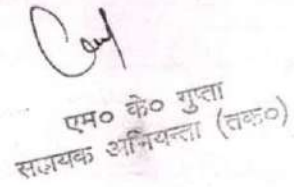 एम० के० गुप्ता
सहायक अभियन्ता (तक०)